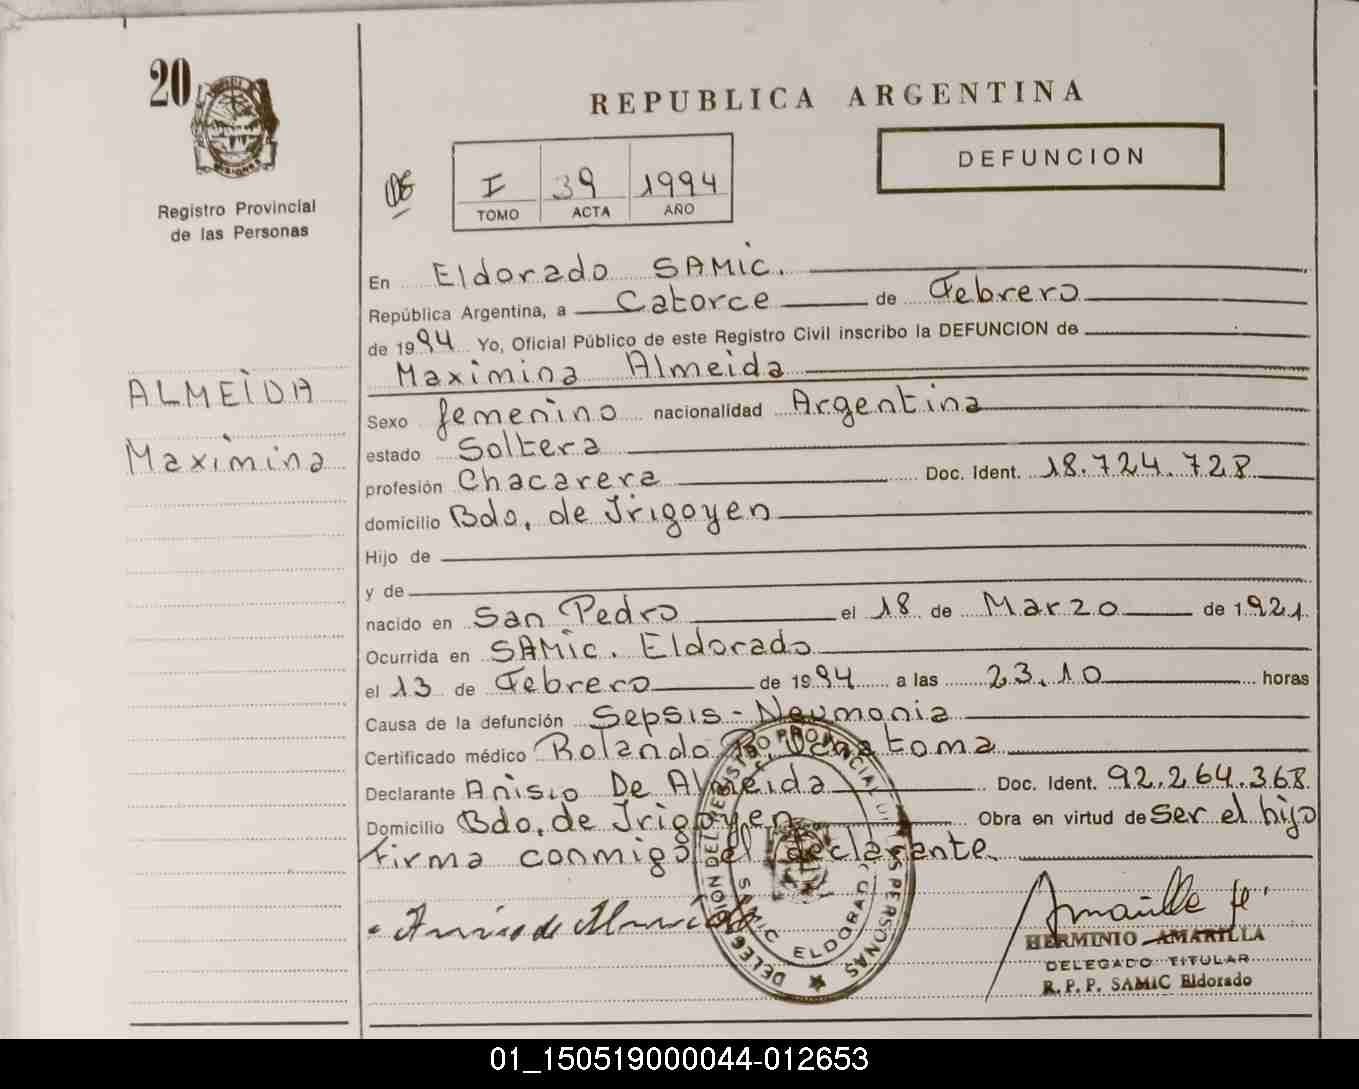 20
MISIONES
Registro Provincial
de las Personas
REPUBLICA ARGENTINA
DEFUNCION
I 39 1994
TOMO ACTA AÑO
ALMEIDA
Maximina
En Eldorado SAMic.
República Argentina, a Catorce de Febrero
de 1994 Yo, Oficial Público de este Registro Civil inscribo la DEFUNCION de
Maximina Almeida
Sexo femenino nacionalidad Argentina
estado Soltera
profesión Chacarera Doc. Ident. 18.724.728
domicilio Bdo. de Irigoyen
Hijo de
y de
nacido en San Pedro el 18 de Marzo de 1921.
Ocurrida en SAMic. Eldorado
el 13 de Febrero de 1994 a las 23.10 horas
Causa de la defunción Sepsis - Neumonia
Certificado médico Rolando
Declarante Anisio De Almeida Doc. Ident. 92.264.368
Domicilio Bdo. de Irigoyen Obra en virtud de Ser el hijo
firma conmigo el declarante.
DELEGACION DEL REGISTRO PROVINCIAL DE LAS PERSONAS
SAMIC ELDORADO
HERMINIO AMARILLA
DELEGADO TITULAR
R. P. P. SAMIC Eldorado
01_150519000044-012653